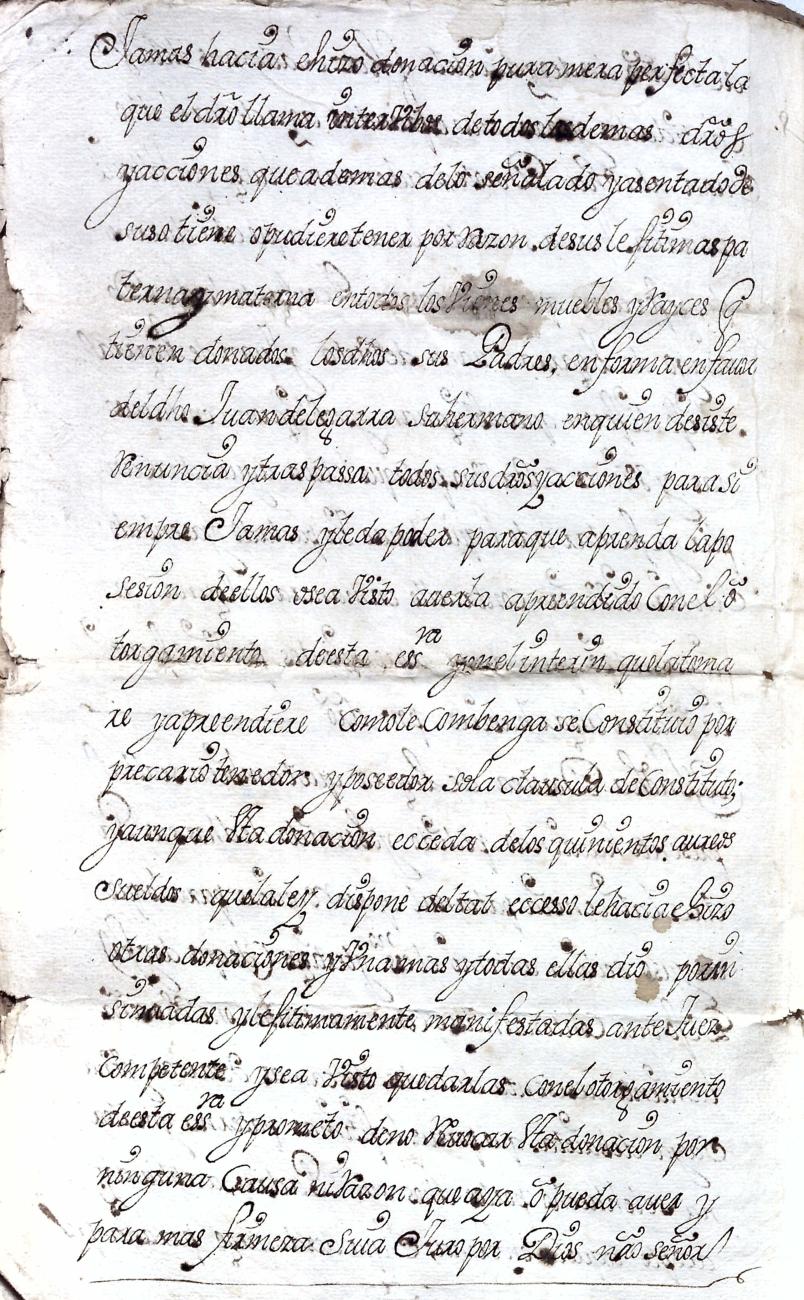 Jamas hacia ehizo donacion pura mera perfecta la
que el dro llama intervibos de todos los demas dros
yacciones que ademas delo señalado yasentado de
suso tiene opudiere tener por Razon de sus lefitimas pa
terna ymaterna entodos los Vienes muebles yRayces q
tienen donados losdhos sus Padres, en forma enfavor
deldho Juan de legarra su hermano enquien desiste
Renuncia ytraspassa todos sus dros yacciones para si
empre Jamas yleda poder paraque aprenda lapo
sesion deellos osea Visto averla apreendido Conel o
torgamiento deesta essra yenel interin quelatoma
re yapreendiere comole combenga se Constituio por
precario tenedor yposeedor sola clausula de Constituto;
yaunque Sta donacion ecceda delos quinientos aureos
sueldos quelaley dispone deltal eccesso lehacia ehizo
otras donaciones yVna mas ytodas ellas dio porin
sinuadas ylefitimamente manifestadas ante Juez
Competente ysea Visto quedarlas conelotorgamiento
deesta essra yprometo deno Revocar Sta donacion por
ninguna Causa niRazon que aya o pueda aver y
para mas firmeza suia Juro por Dios nro señor